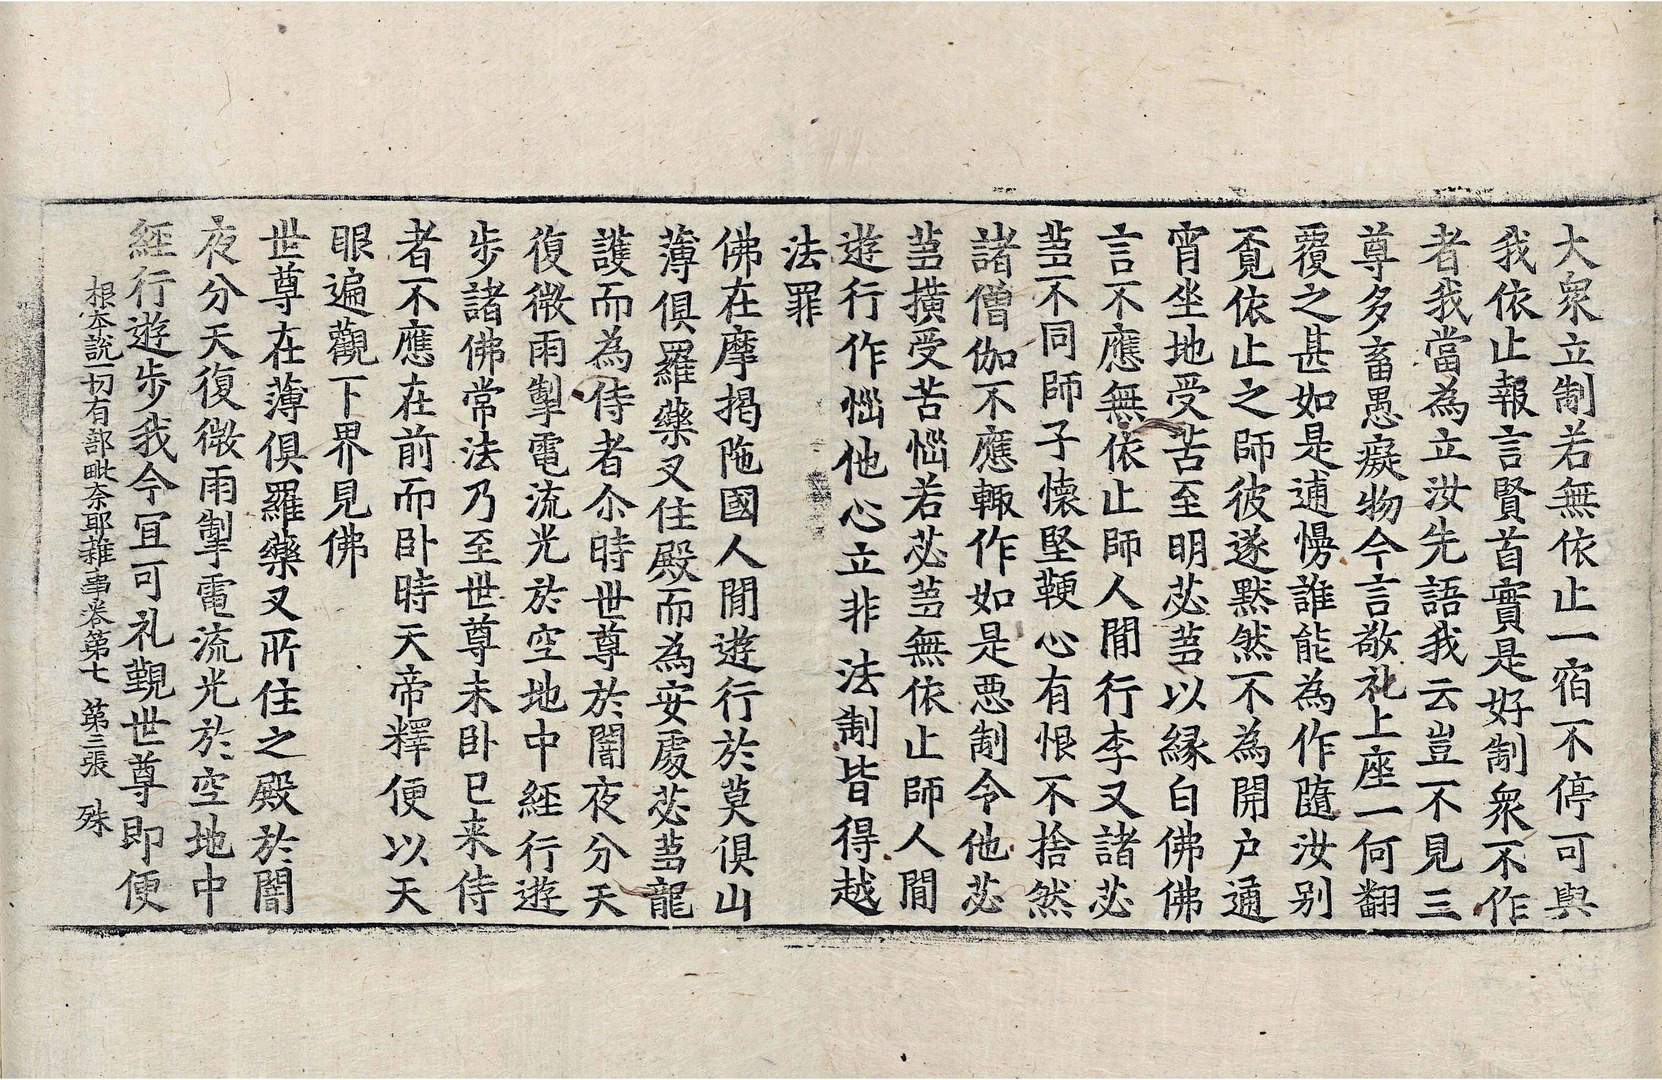 大衆立制若無依止一宿不停可與
我依止報言賢首實是好制衆不作
者我當為立汝先語我云豈不見三
尊多畜愚癡物今言敬礼上座一何翻
覆之甚如是逋慢誰能為作隨汝别
覓依止之師彼遂默然不為開户通
宵坐地受苦至明苾芻以緣白佛佛
言不應無依止師人間行李又諸苾
芻不同師子懷堅鞕心有恨不捨然
諸僧伽不應輙作如是惡制令他苾
芻擴受苦惱若苾芻無依止師人間
遊行作惱他心立非法制皆得越
法罪
佛在摩揭陁國人間遊行於莫俱山
薄俱羅藥叉住殿而為安處苾芻龍
護而為侍者尒時世尊於闇夜分天
復微雨掣電流光於空地中經行遊
步諸佛常法乃至世尊未卧已来侍
者不應在前而卧時天帝釋便以天
眼遍觀下界見佛
世尊在薄俱羅藥叉所住之殿於闇
夜分天復微雨掣電流光於空地中
經行遊步我今宜可礼覲世尊即便
根本說一切有部毗奈耶雜事卷第七 第三張 殊